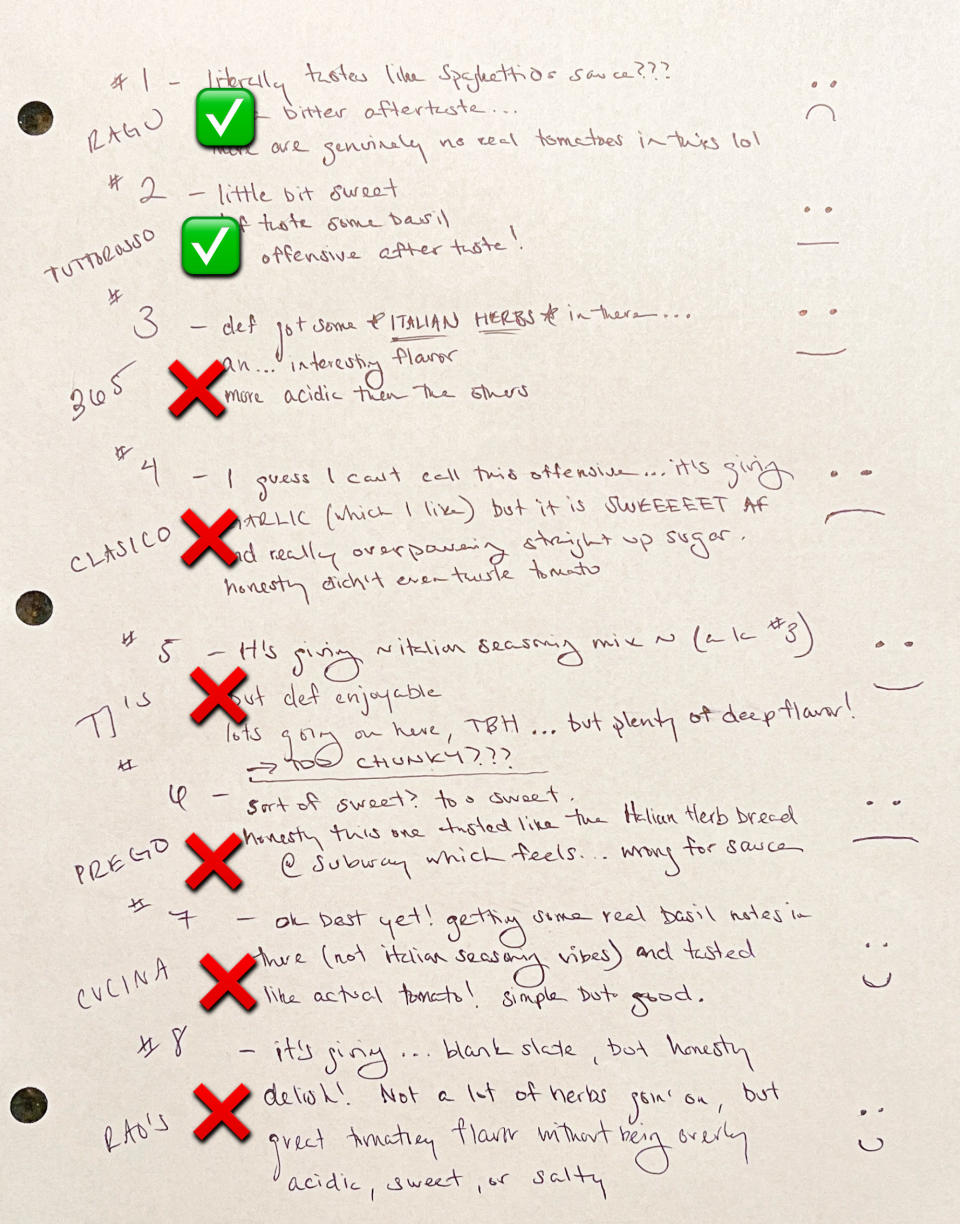 #1 - literally tastes like Spaghettios sauce???
RAGU bitter aftertaste...
there are genuinely no real tomatoes in this lol
#2 - little bit sweet
def taste some basil
TUTTOROSSO offensive after taste!
#3 - def got some *ITALIAN HERBS* in there...
an... interesting flavor
365 more acidic then the others
#4 - I guess I can't call this offensive... it's giving
GARLIC (which I like) but it is SWEEEEET AF
CLASICO and really overpowering straight up sugar.
honestly didn't even taste tomato
#5 - It's giving ~italian seasoning mix~ (a la #3)
TJ'S but def enjoyable
lots going on here, TBH... but plenty of deep flavor!
→ TOO CHUNKY???
#6 - sort of sweet? too sweet.
honestly this one tasted like the Italian Herb bread
PREGO @ Subway which feels... wrong for sauce
#7 - ok best yet! getting some real basil notes in
there (not italian seasoning vibes) and tasted
CUCINA like actual tomato! simple but good.
#8 - it's giving... blank slate, but honestly
delish! Not a lot of herbs goin' on, but
RAO'S great tomatoey flavor without being overly
acidic, sweet, or salty